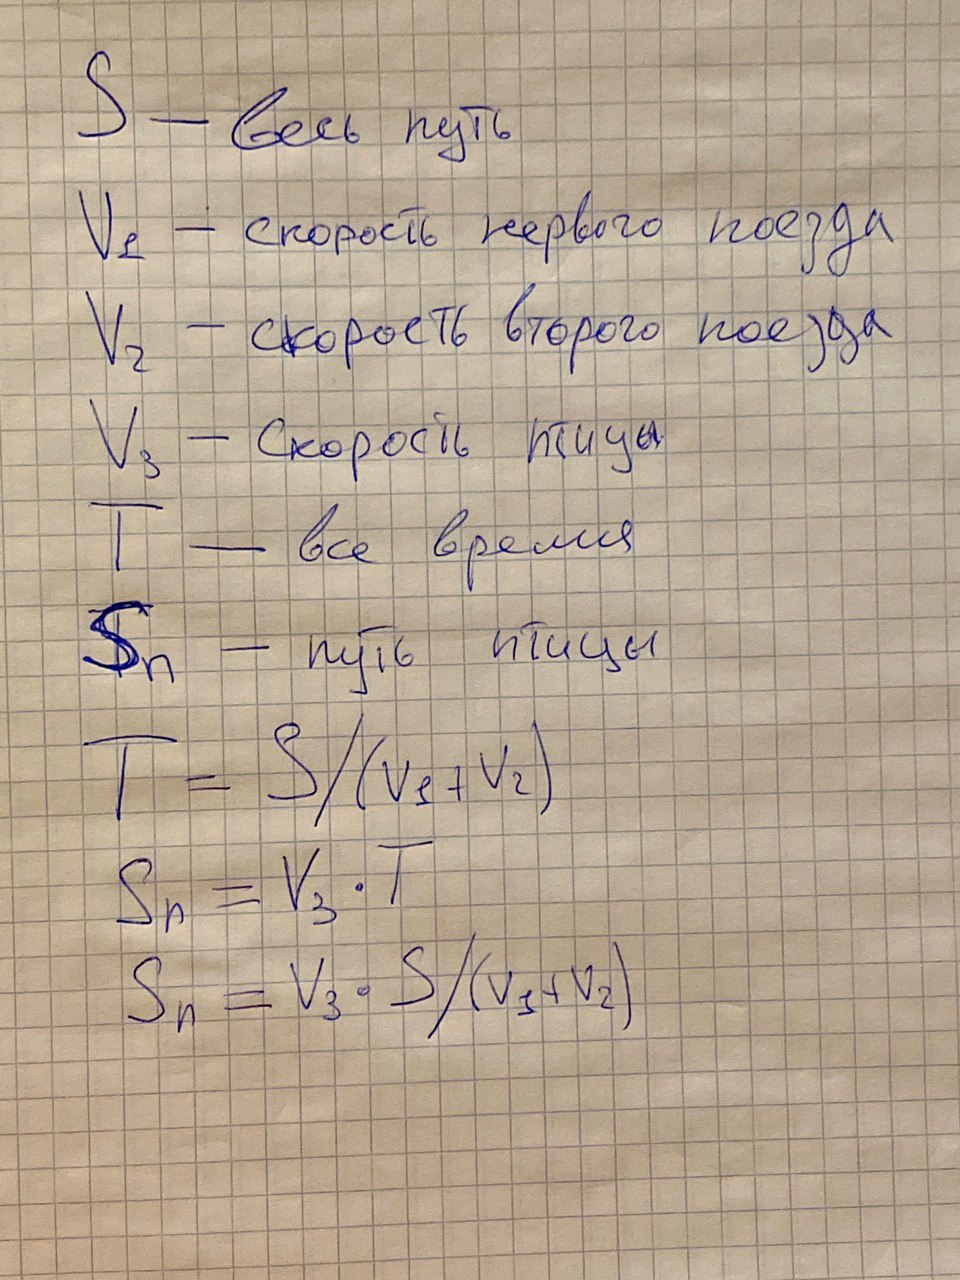 S — весь путь
V1 — скорость первого поезда
V2 — скорость второго поезда
V3 — Скорость птицы
T — все время
Sп — путь птицы
T = S/(V1+V2)
Sп = V3·T
Sп = V3·S/(V1+V2)